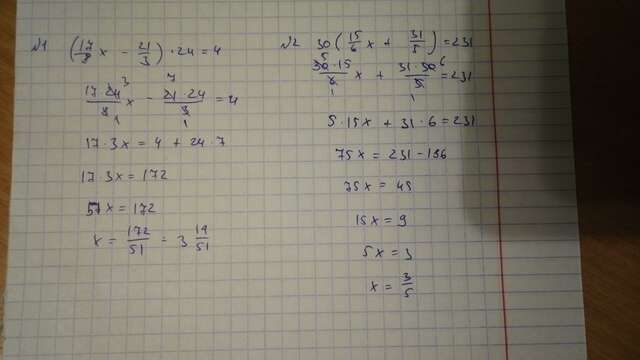 №1 (17/8 x - 21/3) · 24 = 4
17·24/8 x - 21·24/3 = 4
3 7
1 1
17·3x = 4 + 24·7
17·3x = 172
51x = 172
x = 172/51 = 3 19/51
№2 30(15/6 x + 31/5) = 231
30·15/6 x + 31·30/5 = 231
5 6
1 1
5·15x + 31·6 = 231
75x = 231 - 186
75x = 45
15x = 9
5x = 3
x = 3/5